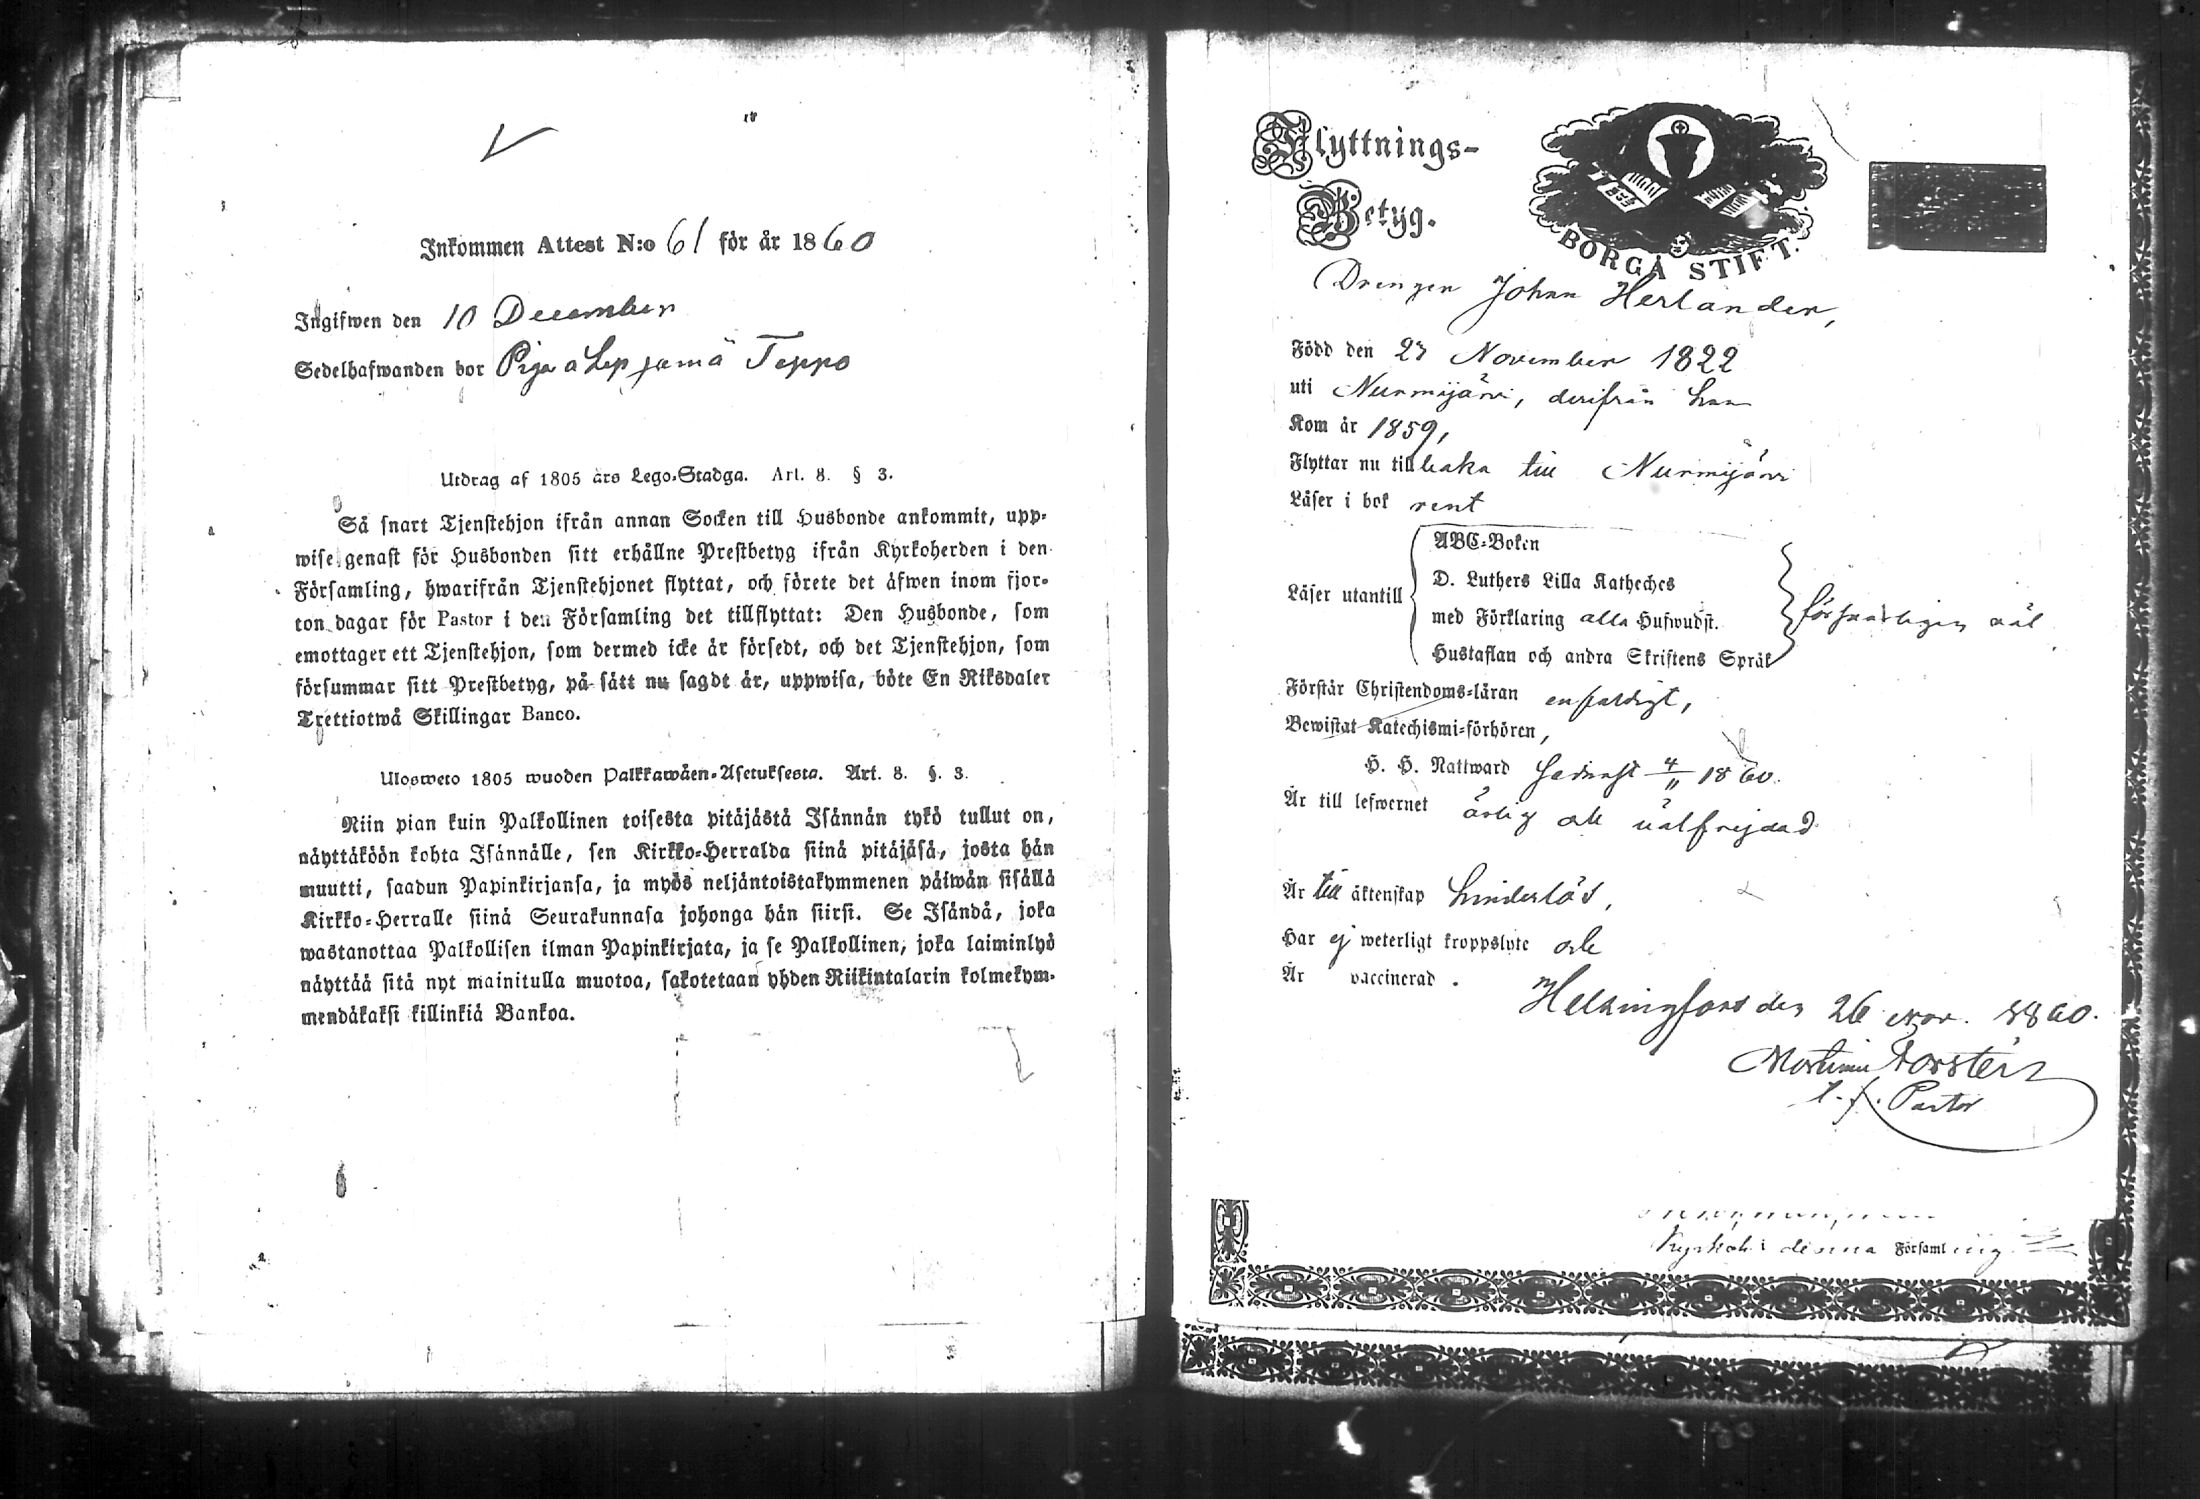 Inkommen Attest N:o 61 för år 1860
Ingifwen den 10 December
Sedelhafwanden bor Teppo
Utdrag af 1805 års Lego-Stadga. Art. 8. § 3.
Så snart Tjenstehjon ifrån annan Socken till Husbonde ankommit, upp-
wise genast för Husbonden sitt erhållne Prestbetyg ifrån Kyrkoherden i den
Församling, hwarifrån Tjenstehjonet flyttat, och förete det äfwen inom fjor-
ton dagar för Pastor i den Församling det tillflyttat: Den Husbonde, som
emottager ett Tjenstehjon, som dermed icke är försedt, och det Tjenstehjon, som
försummar sitt Prestbetyg, på sätt nu sagdt är, uppwisa, böte En Riksdaler
Trettiotwå Skillingar Banco.
Ulosweto 1805 wuoden Palkkawäen-Asetuksesta. Art. 8. §. 3.
Niin pian kuin Palkollinen toisesta pitäjästä Isännän tykö tullut on,
näyttäköön kohta Isännälle, sen Kirkko-Herralda siinä pitäjäsä, josta hän
muutti, saadun Papinkirjansa, ja myös neljäntoistakymmenen päiwän sisällä
Kirkko-Herralle siinä Seurakunnasa johonga hän siirsi. Se Isändä, joka
wastanottaa Palkollisen ilman Papinkirjata, ja se Palkollinen, joka laiminlyö
näyttää sitä nyt mainitulla muotoa, sakotetaan yhden Riikintalarin kolmekym-
mendäkaksi killinkiä Bankoa.
Flyttnings-
Betyg.
BORGÅ STIFT.
Drengen Johan Herlander,
Född den 23 November 1822
uti Nurmijärvi, derifrån han
Kom år 1859,
Flyttar nu tillbaka till Nurmijärvi
Läser i bok rent
Läser utantill
ABC-Boken
D. Luthers Lilla Katheches
med Förklaring alla Hufwudst.
Hustaflan och andra Skriftens Språk
försvarligen väl
Förstår Christendoms-läran enfaldigt,
Bewistat Katechismi-förhören,
H. H. Nattward sednast 4/11 1860.
Är till lefwernet ärlig och välfrejdad
Är till äktenskap hinderlös,
Har ej weterligt kroppslyte och
Är vaccinerad.
Helsingfors den 26 Nov. 1860.
Forstén
t. f. Pastor
Kyrkoh i denna Församling